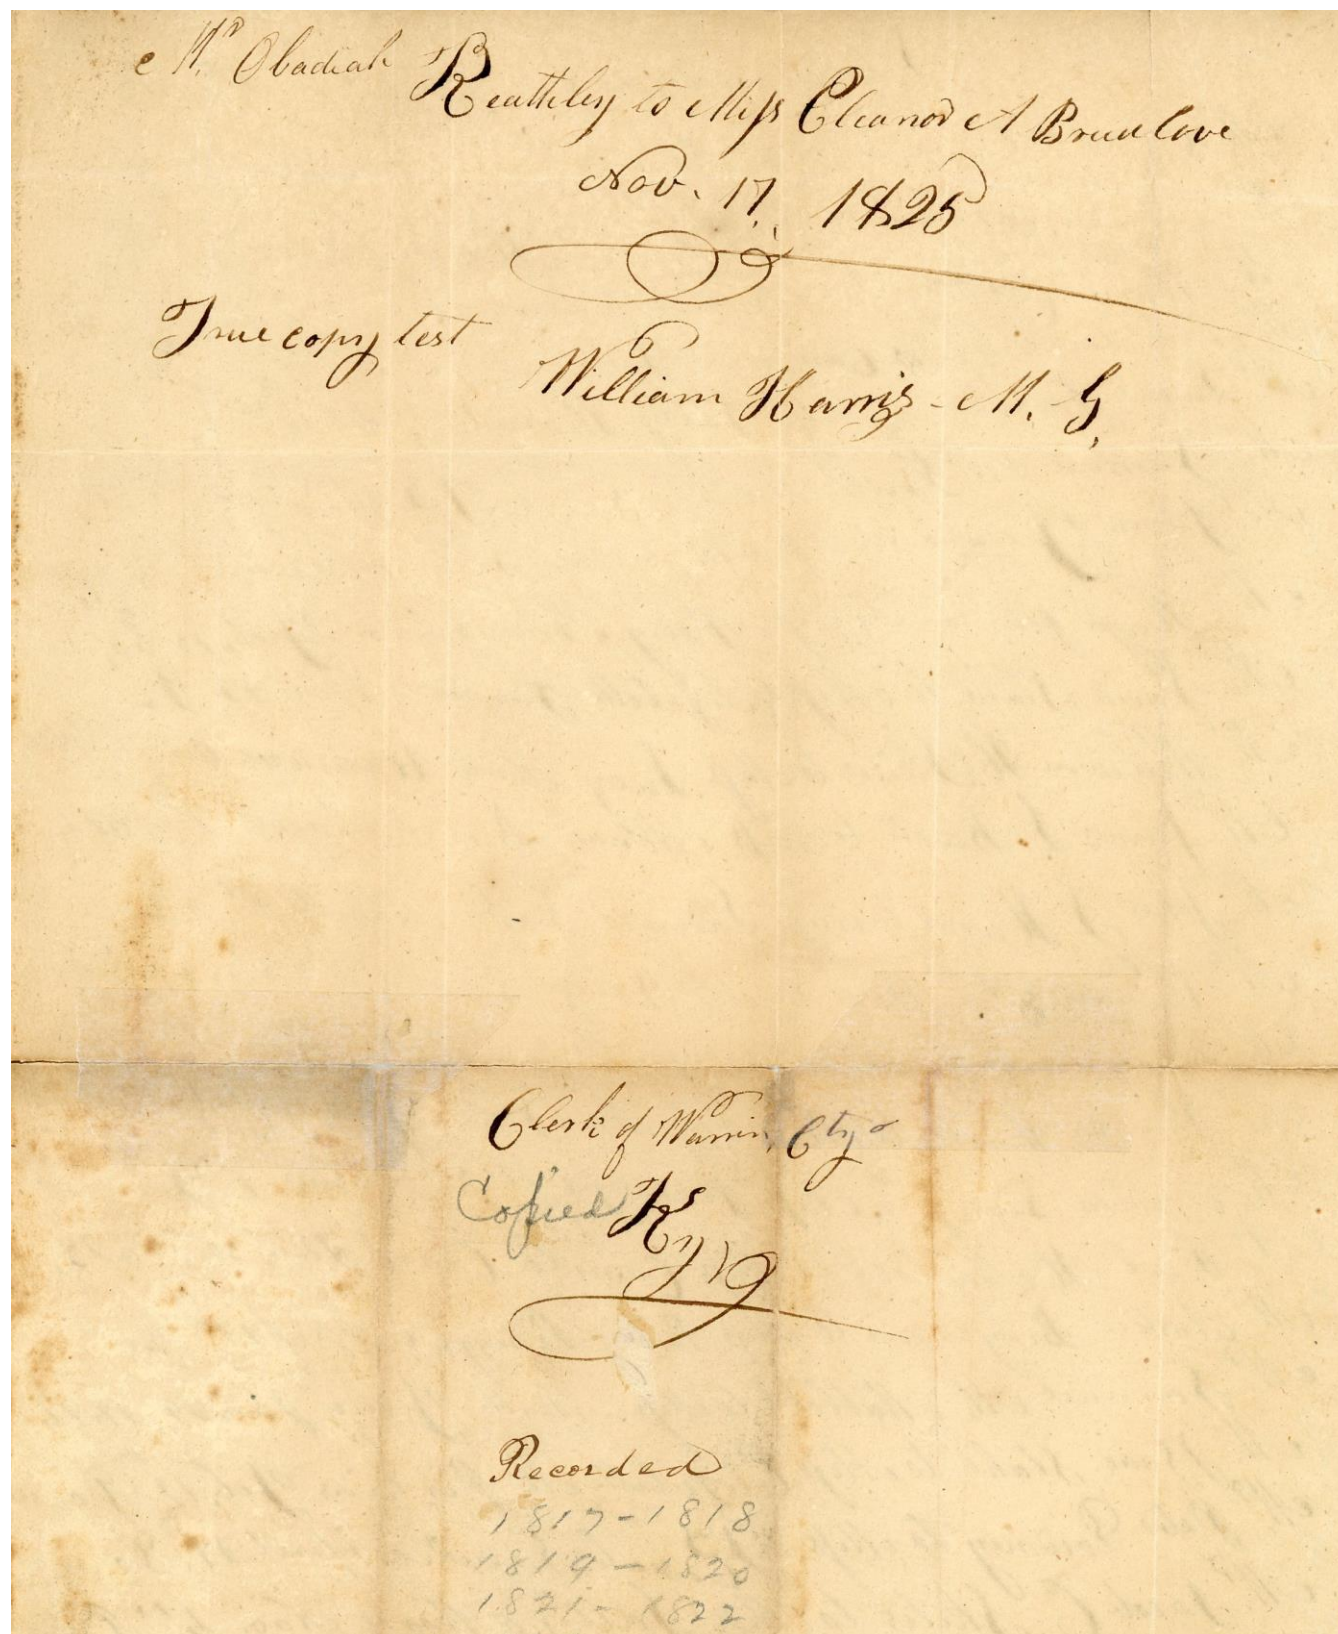 Mr. Obadiah Keattley to Miss Eleanor A Breedlove
Nov. 17. 1825
True copy test
William Harris - M. G.
Clerk of Warrin Cty
Copied Ky
Recorded
1817-1818
1819-1820
1821-1822